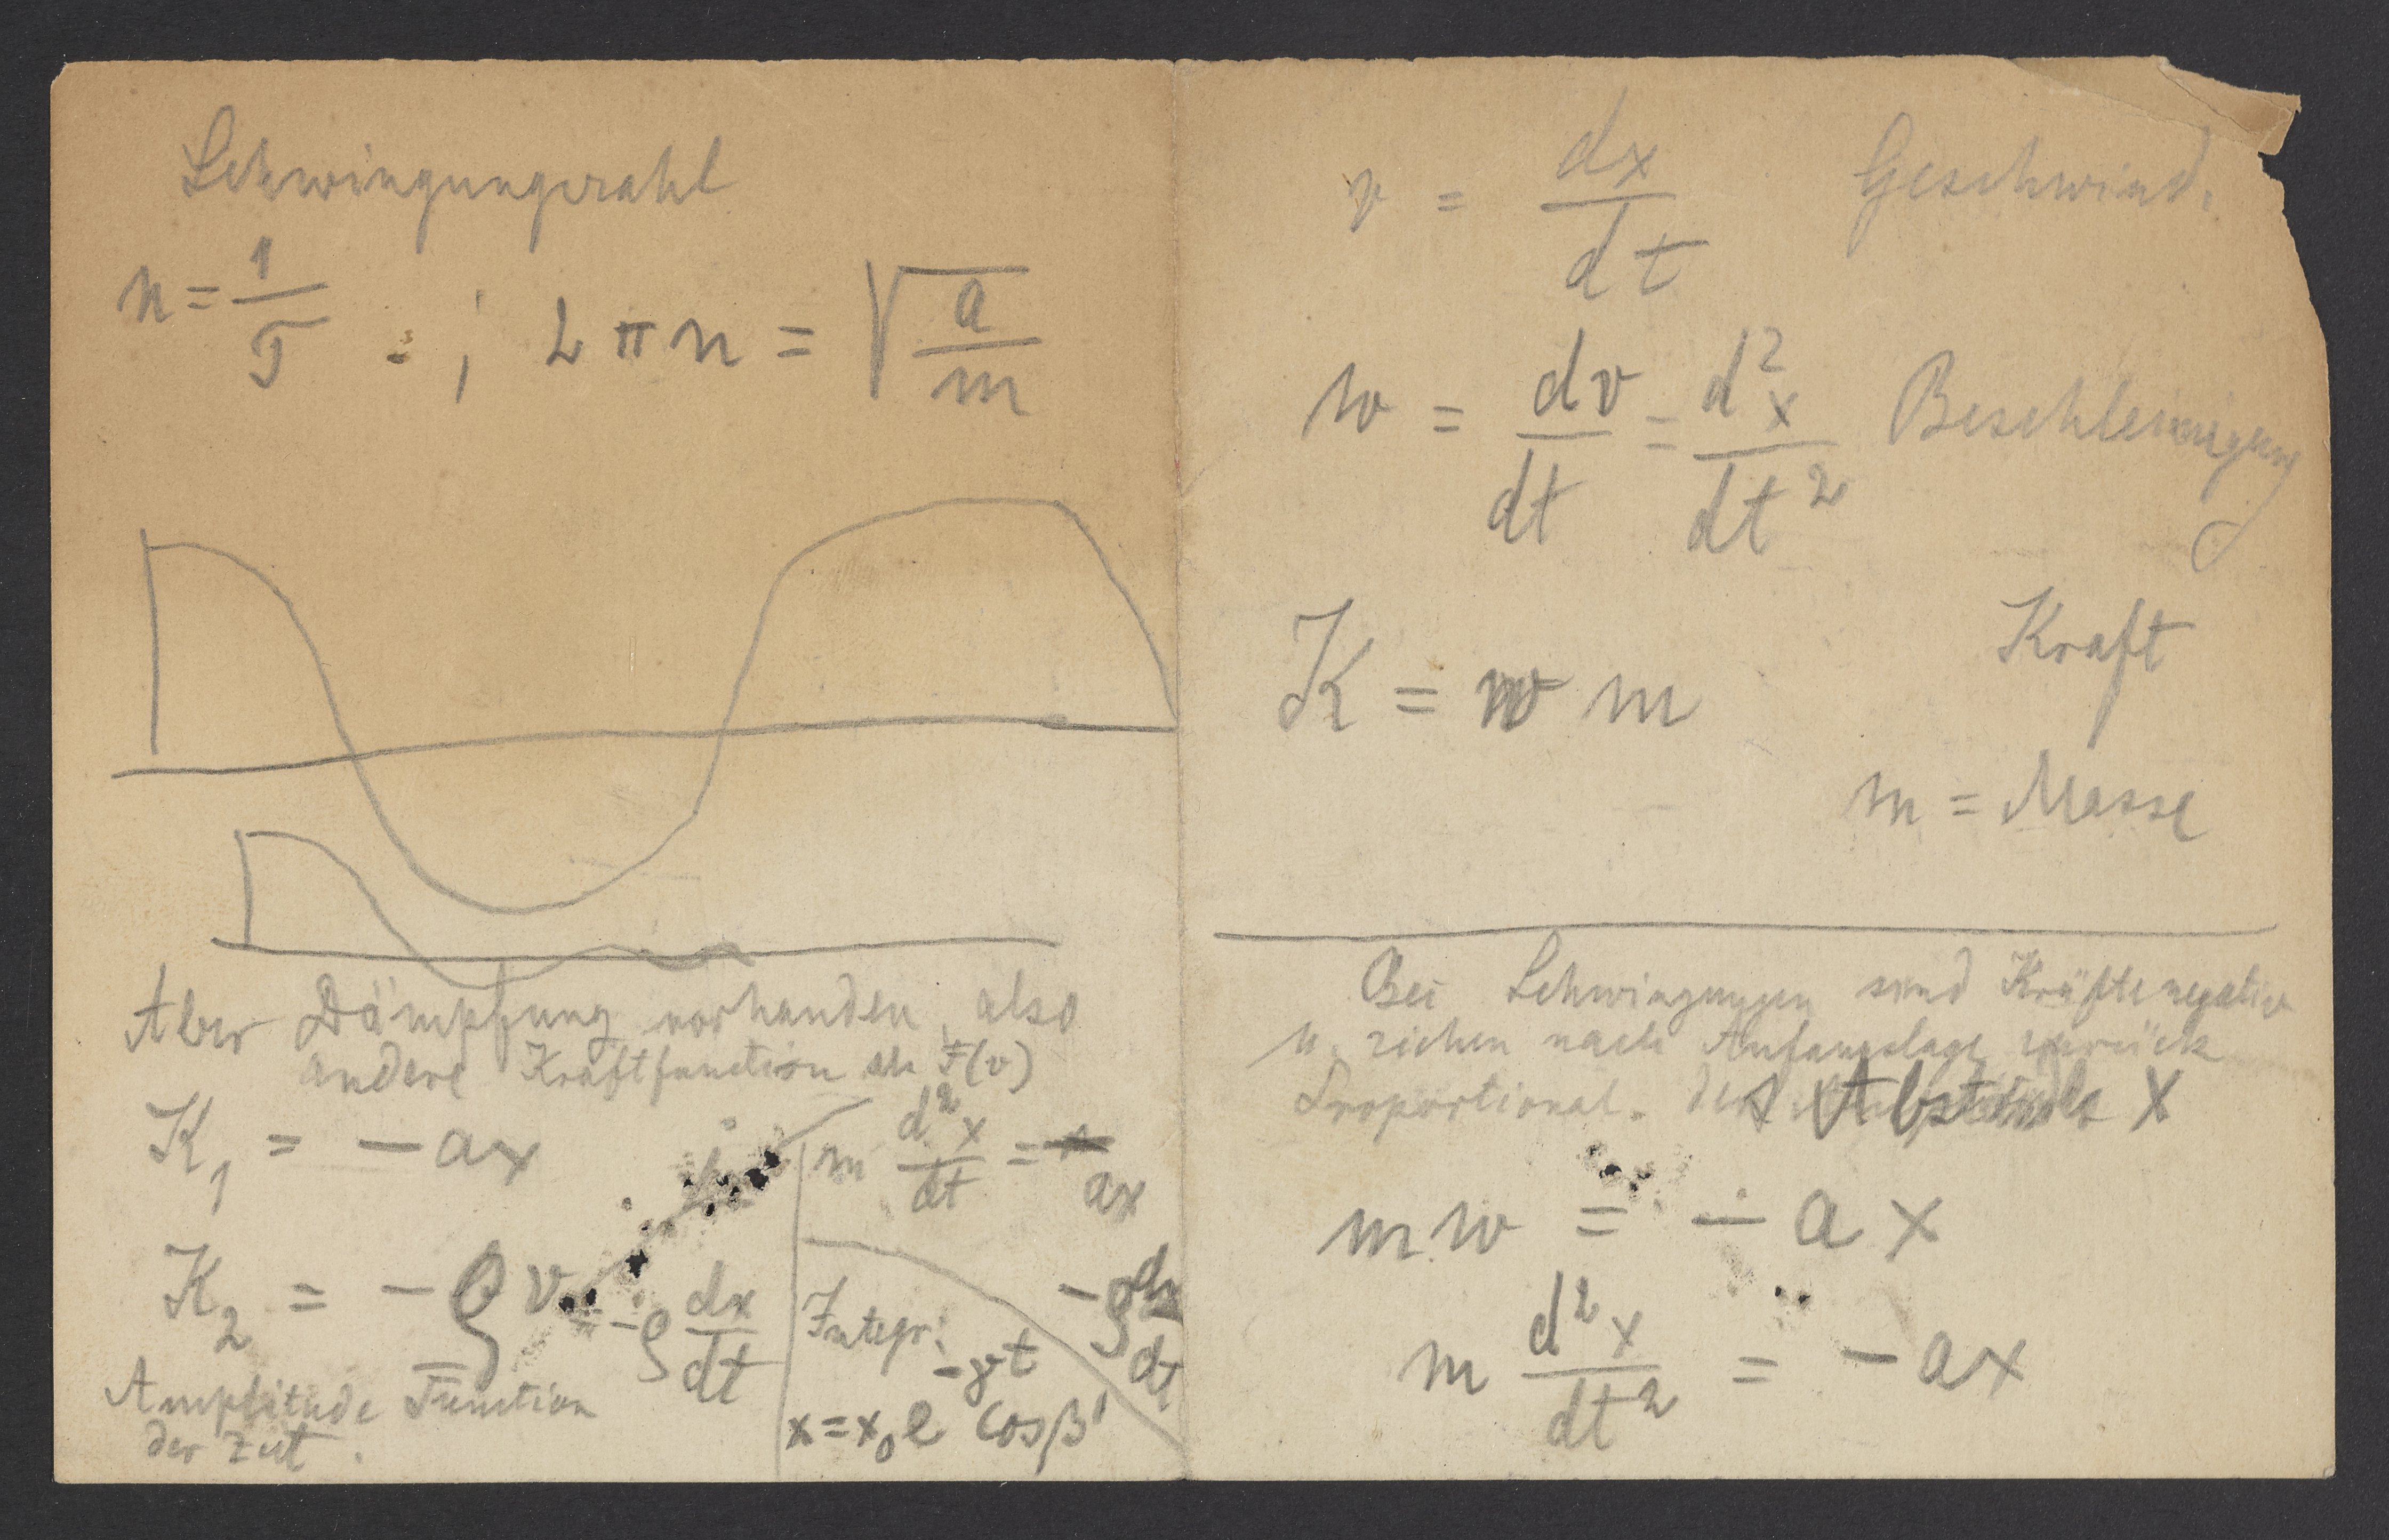 Schwingungszahl
n = 1/T ; 2πn = √(a/m)
Aber Dämpfung vorhanden, also
andere Kraftfunction F(v)
K₁ = - ax
K₂ = - ϱ v = - ϱ dx/dt
Amplitude Function
der Zeit.
m d²x/dt =
ax
- ϱ dx/dt
Integr:
x = x₀ e^(-γt) cos β'
v = dx/dt Geschwind.
w = dv/dt = d²x/dt² Beschleunigung
K = w m Kraft
m = Masse
Bei Schwingungen sind Kräfte negativ
u. ziehen nach Anfangslage zurück
Proportional. des Abstandes x
m w = - a x
m d²x/dt² = - ax